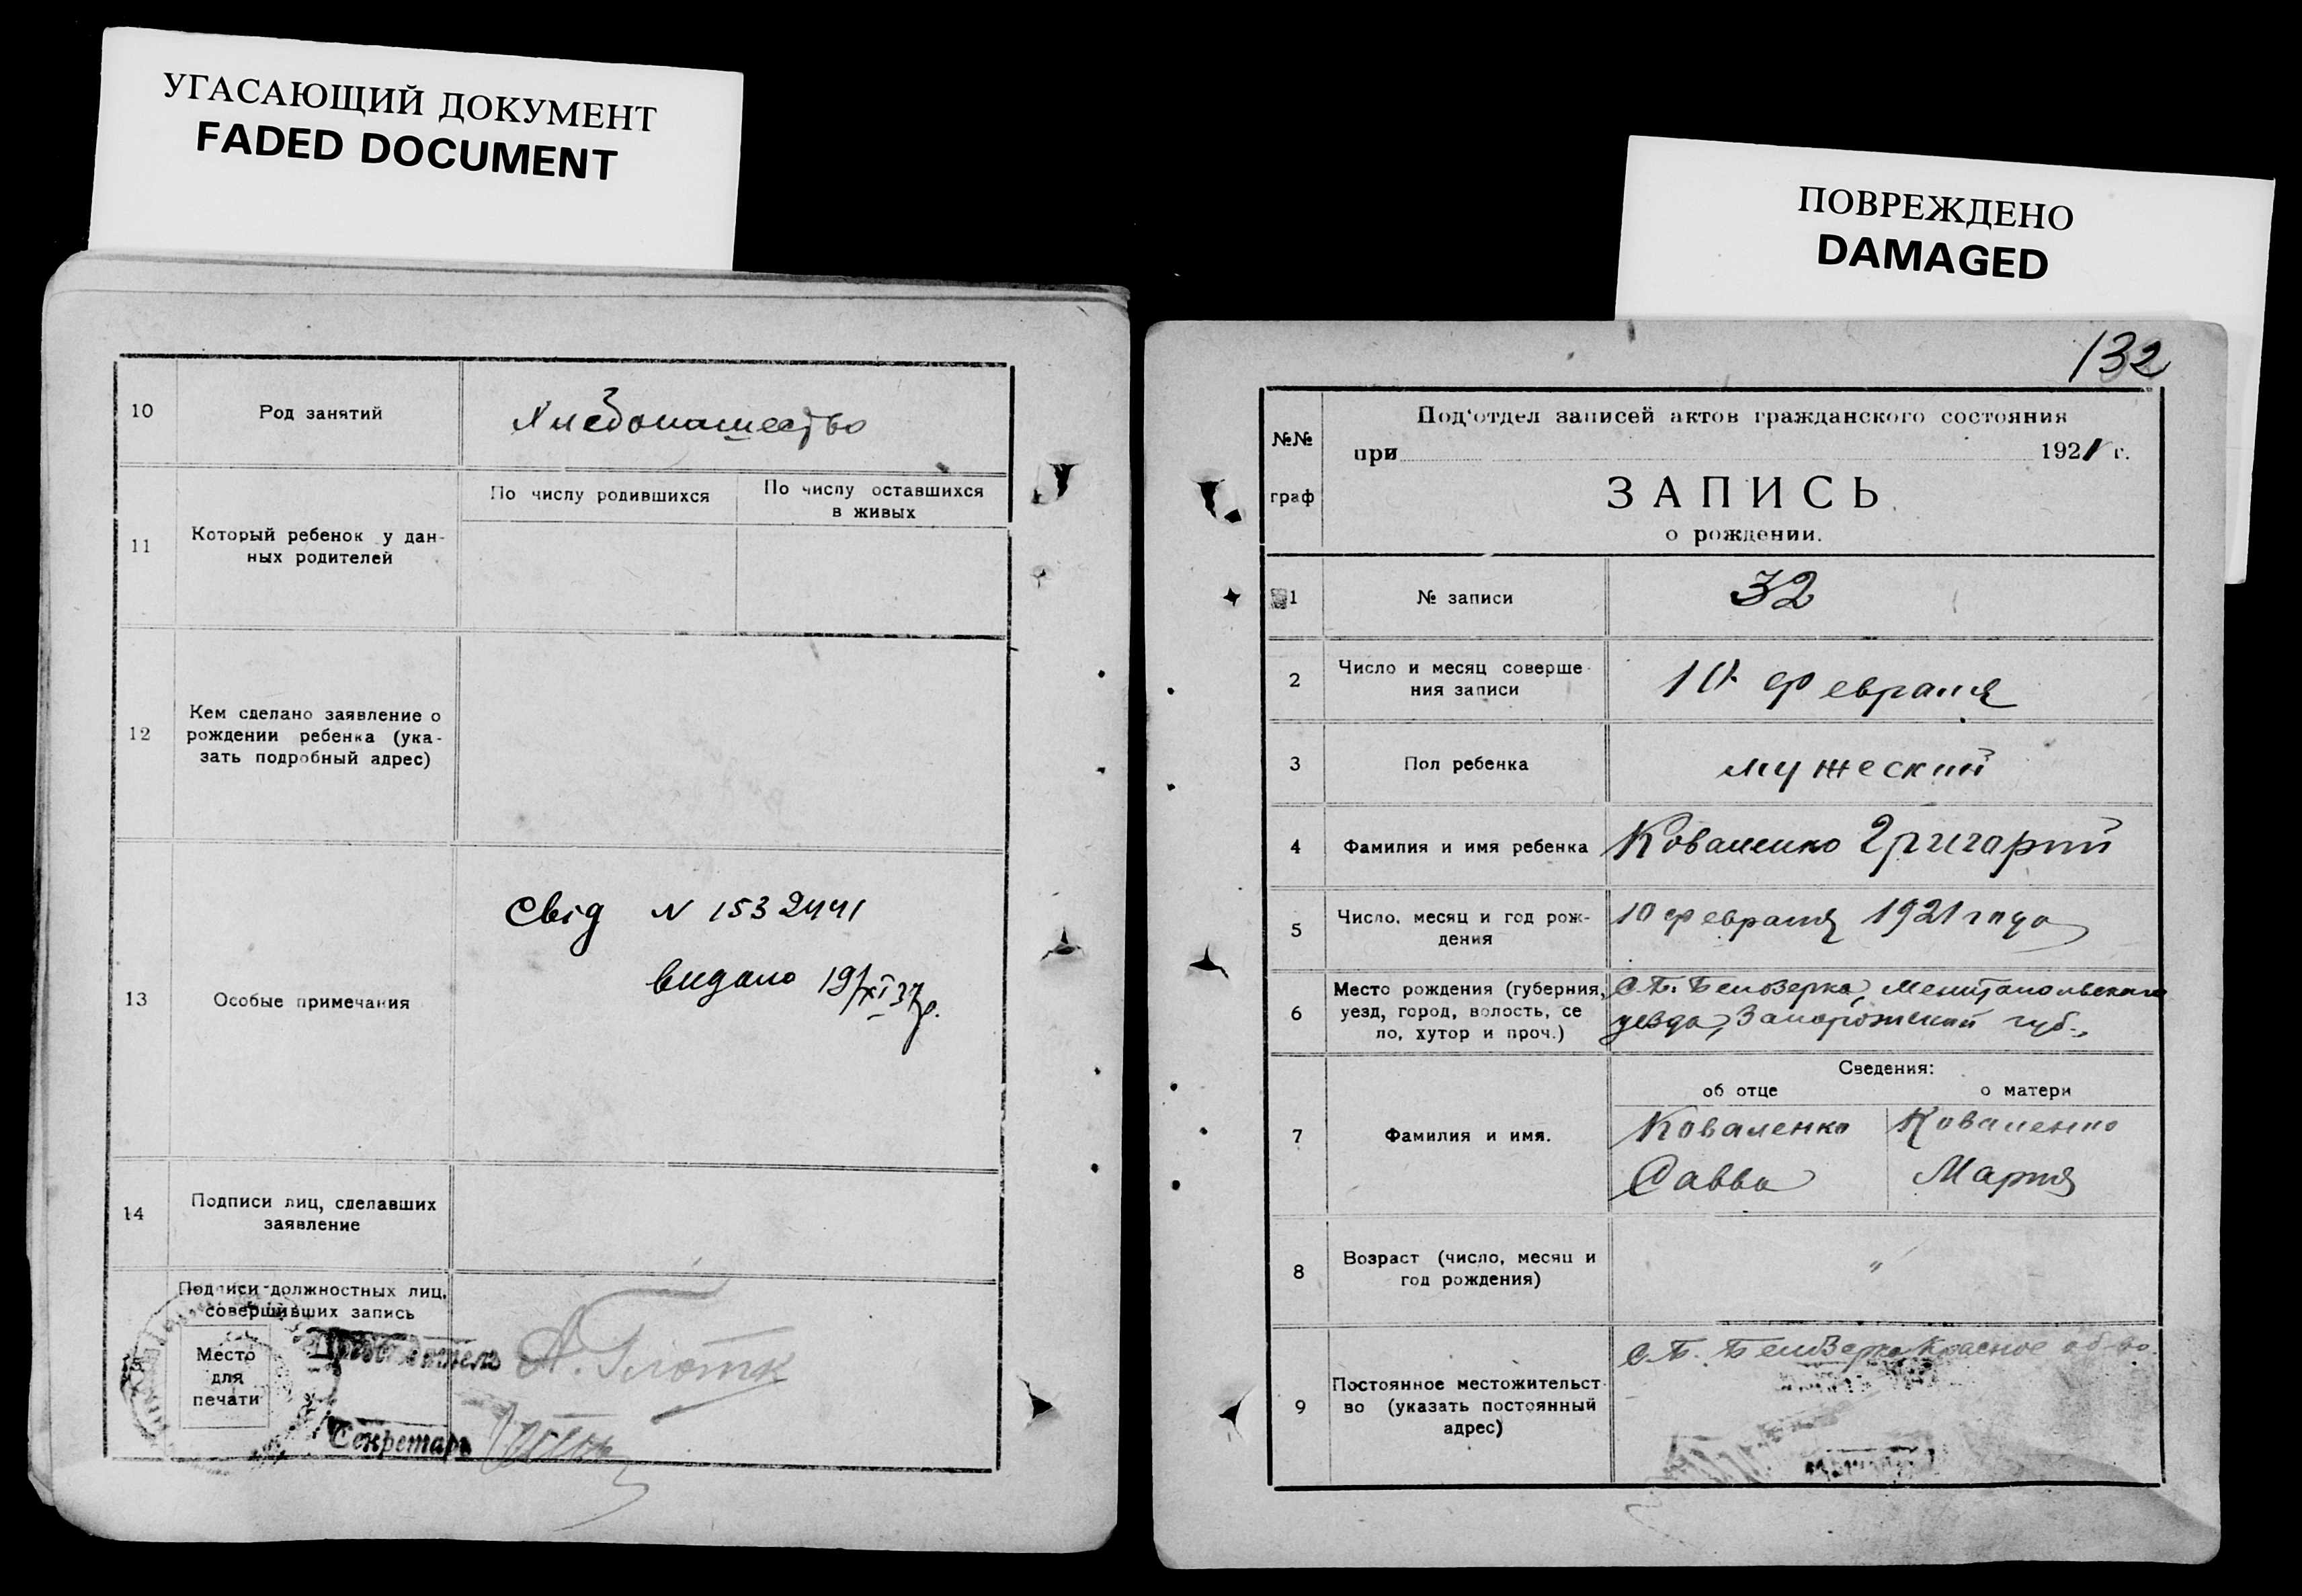 УГАСАЮЩИЙ ДОКУМЕНТ
FADED DOCUMENT
10
Род занятий
Хлебопашество
11
Который ребенок у дан-
ных родителей
По числу родившихся
По числу оставшихся
в живых
12
Кем сделано заявление о
рождении ребенка (ука-
зать подробный адрес)
13
Особые примечания
Свід N 1532441
видано 19/XI 37р.
14
Подписи лиц, сделавших
заявление
15
Подписи должностных лиц,
совершивших запись
Место
для
печати
Председатель
Секретарь
ПОВРЕЖДЕНО
DAMAGED
132
№№
граф
Под'отдел записей актов гражданского состояния
при 1921 г.
ЗАПИСЬ
о рождении.
1
№ записи
32
2
Число и месяц соверше-
ния записи
10 февраля
3
Пол ребенка
мужеский
4
Фамилия и имя ребенка
Коваленко Григорий
5
Число, месяц и год рож-
дения
10 февраля 1921 года
6
Место рождения (губерния,
уезд, город, волость, се
ло, хутор и проч.)
С.Б. Белозерка, Мелитопольского
уезда, Запорожской губ.,
7
Фамилия и имя.
Сведения:
об отце
о матери
Коваленко
Савва
Коваленко
Мария
8
Возраст (число, месяц и
год рождения)
"
9
Постоянное местожительст-
во (указать постоянный
адрес)
С.Б. Белозерка Красное об-во.